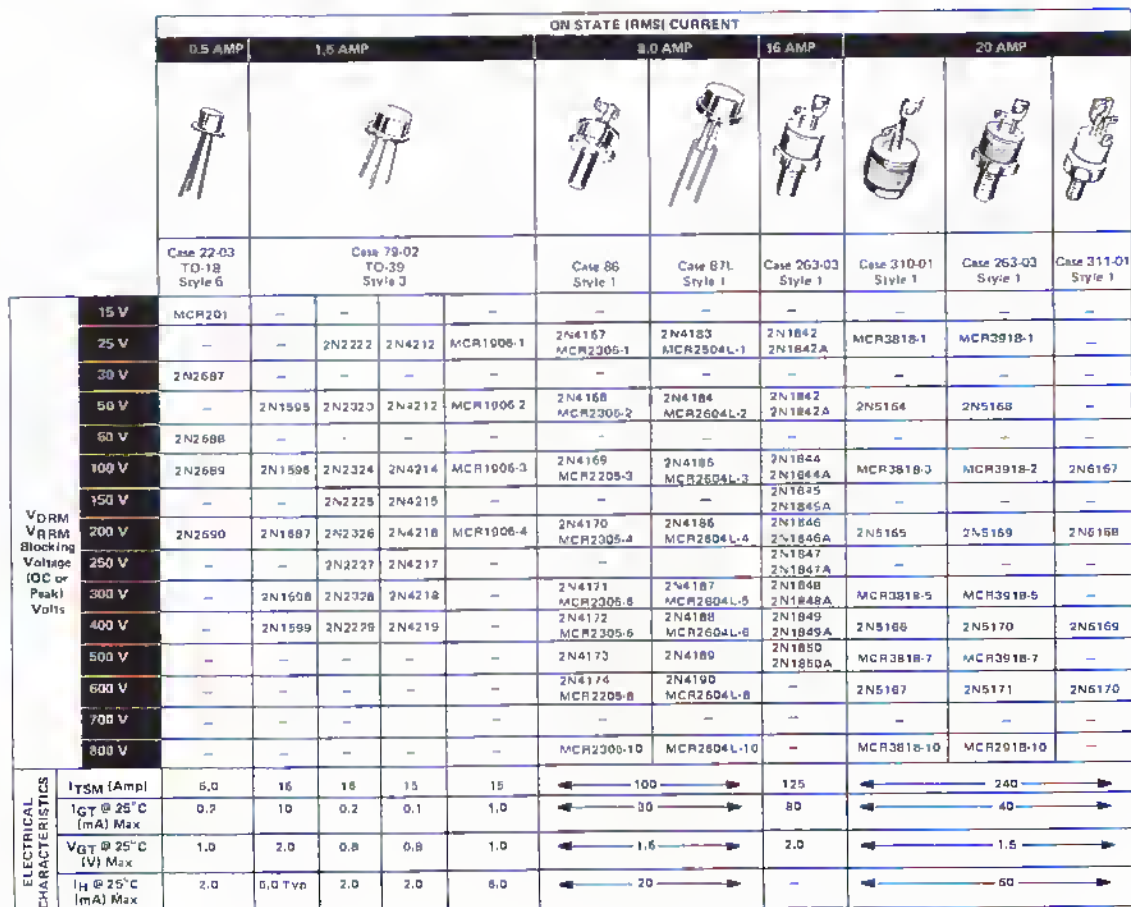 ON STATE (RMS) CURRENT
0.5 AMP 1.6 AMP 8.0 AMP 16 AMP 20 AMP
Case 22-03 TO-18 Style 6
Case 79-02 TO-39 Style 3
Case 86 Style 1
Case 87L Style 1
Case 263-03 Style 1
Case 310-01 Style 1
Case 263-03 Style 1
Case 311-01 Style 1
VDRM
VRRM
Blocking
Voltage
(DC or
Peak)
Volts
15 V MCR201 – – – – – – – –
25 V – – 2N2222 2N4212 MCR1906-1 2N4167 MCR2306-1 2N4183 MCR2504L-1 2N1842 2N1842A MCR3818-1 MCR3918-1 –
30 V 2N2687 – – – – – – – – – –
50 V – 2N1595 2N2323 2N4212 MCR1906-2 2N4168 MCR2305-2 2N4184 MCR2604L-2 2N1842 2N1842A 2N5164 2N5168 –
60 V 2N2688 – – – – – – – – – –
100 V 2N2689 2N1596 2N2324 2N4214 MCR1906-3 2N4169 MCR2205-3 2N4185 MCR2604L-3 2N1844 2N1844A MCR3818-3 MCR3918-2 2N6167
150 V – – 2N2225 2N4215 – – – 2N1845 2N1845A – – –
200 V 2N2690 2N1597 2N2326 2N4216 MCR1906-4 2N4170 MCR2305-4 2N4186 MCR2604L-4 2N1846 2N1846A 2N5165 2N5169 2N6168
250 V – – 2N2227 2N4217 – – – 2N1847 2N1847A – – –
300 V – 2N1598 2N2328 2N4218 – 2N4171 MCR2305-6 2N4187 MCR2604L-5 2N1848 2N1848A MCR3818-5 MCR3918-5 –
400 V – 2N1599 2N2229 2N4219 – 2N4172 MCR2305-6 2N4188 MCR2604L-6 2N1849 2N1849A 2N5166 2N5170 2N6169
500 V – – – – – 2N4173 2N4189 2N1850 2N1850A MCR3818-7 MCR3918-7 –
600 V – – – – – 2N4174 MCR2205-8 2N4190 MCR2604L-8 – 2N5167 2N5171 2N6170
700 V – – – – – – – – – – –
800 V – – – – – MCR2306-10 MCR2604L-10 – MCR3818-10 MCR2918-10 –
ELECTRICAL CHARACTERISTICS
ITSM (Amp) 6.0 16 16 15 15 100 125 240
IGT @ 25°C (mA) Max 0.2 10 0.2 0.1 1.0 30 80 40
VGT @ 25°C (V) Max 1.0 2.0 0.8 0.8 1.0 1.5 2.0 1.5
IH @ 25°C (mA) Max 2.0 5.0 Typ 2.0 2.0 5.0 20 – 50